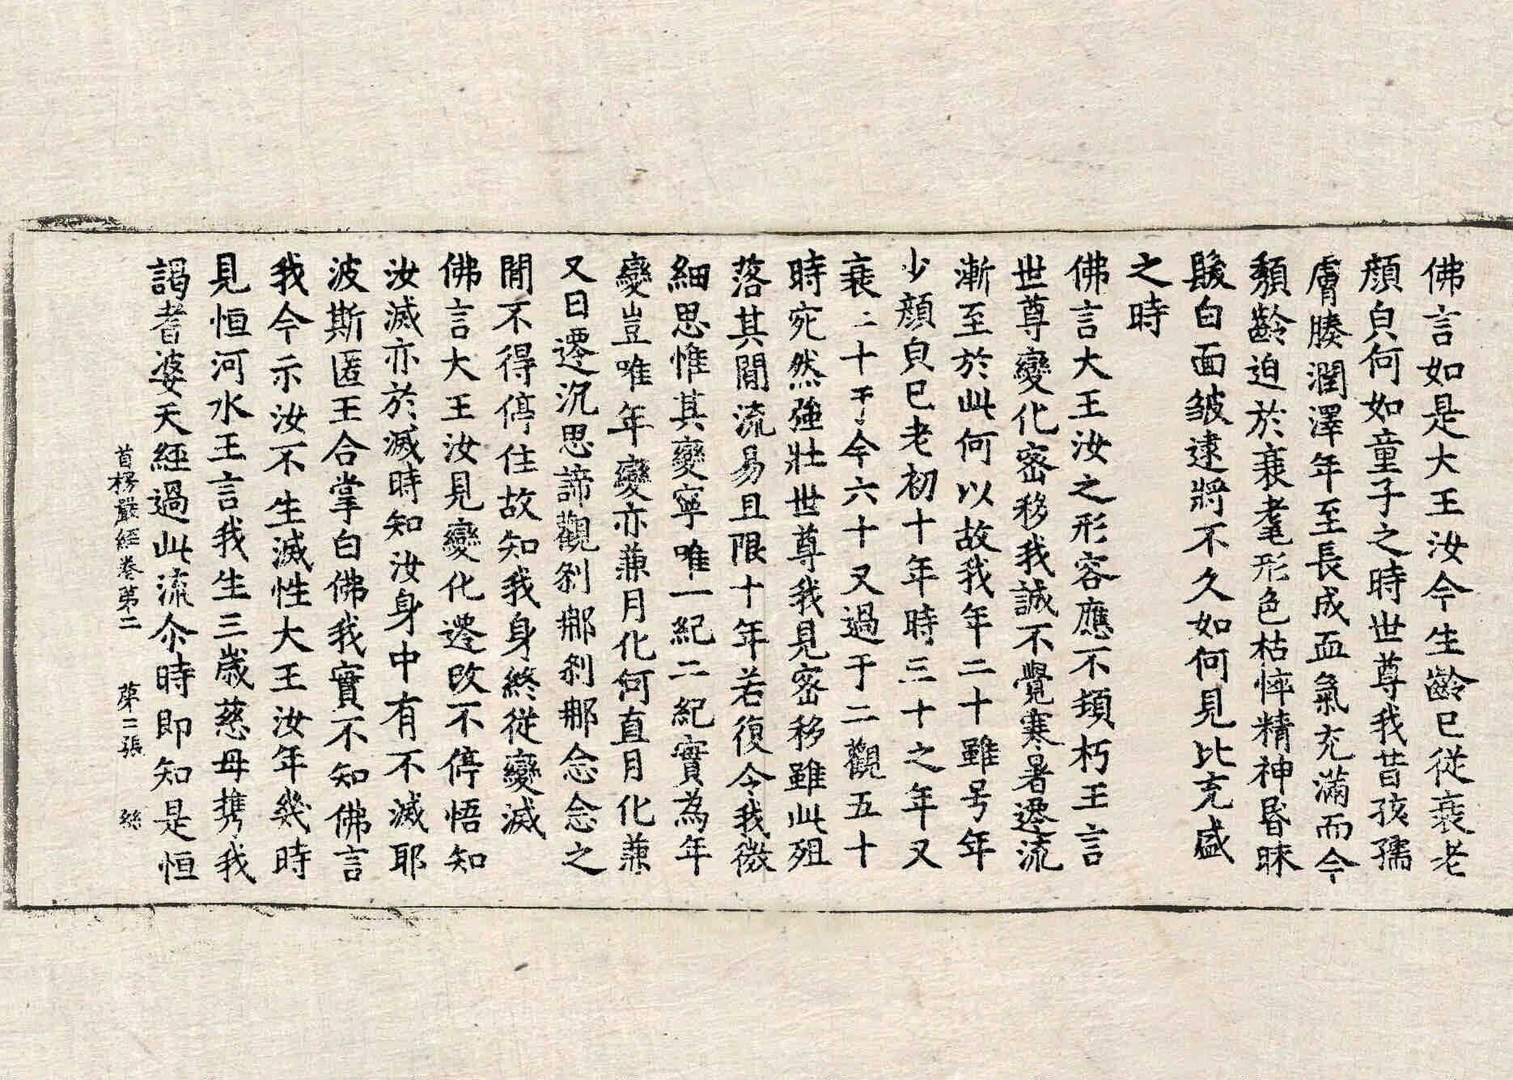 佛言如是大王汝今生齡已從衰老
顔皃何如童子之時世尊我昔孩孺
膚腠潤澤年至長成血氣充滿而今
頹齡迫於衰耄形色枯悴精神昬昧
髮白面皺逮將不久如何見比充盛
之時
佛言大王汝之形容應不頓朽王言
世尊變化密移我誠不覺寒暑遷流
漸至於此何以故我年二十雖号年
少顔皃已老初十年時三十之年又
衰二十于今六十又過于二觀五十
時宛然強壯世尊我見密移雖此殂
落其閒流易且限十年若復令我微
細思惟其變寧唯一紀二紀實為年
變豈唯年變亦兼月化何直月化兼
又日遷沉思諦觀刹那刹那念念之
閒不得停住故知我身終從變滅
佛言大王汝見變化遷改不停悟知
汝滅亦於滅時知汝身中有不滅耶
波斯匿王合掌白佛我實不知佛言
我今示汝不生滅性大王汝年幾時
見恒河水王言我生三歲慈母携我
謁耆婆天經過此流尒時即知是恒
首楞嚴經卷第二 第二張 絲